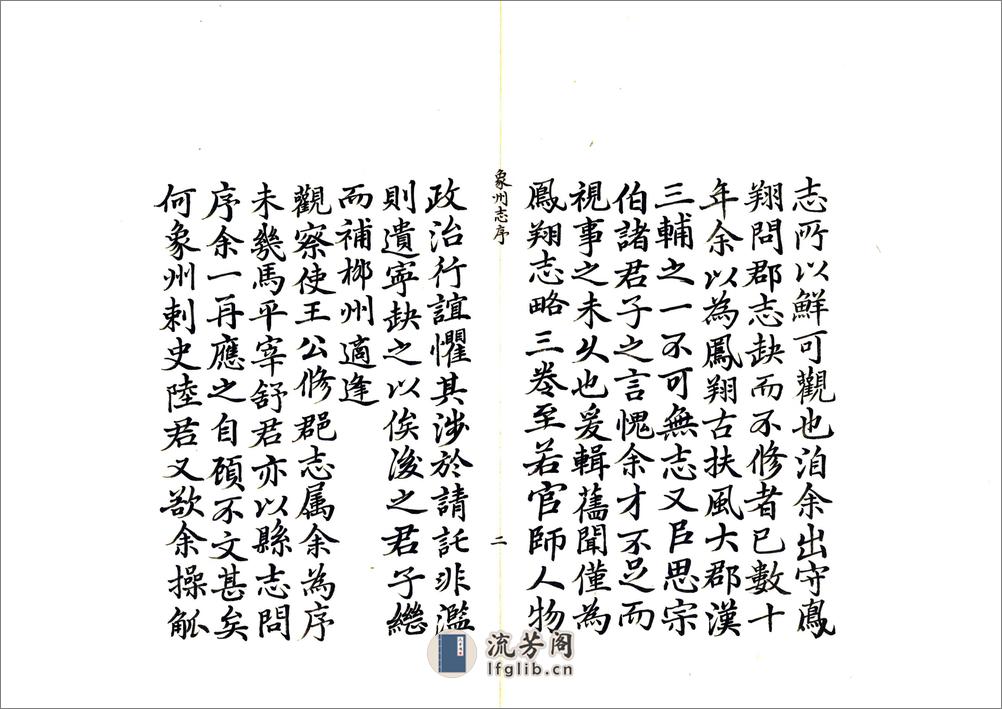 志所以鮮可觀也洎余出守鳳
翔問郡志缺而不修者已數十
年余以為鳳翔古扶風大郡漢
三輔之一不可無志又巨思宗
伯諸君子之言愧余才不足而
視事之未久也爰輯舊聞僅為
鳳翔志略三卷至若官師人物
象州志序
二
政治行誼懼其涉於請託非濫
則遺寧缺之以俟後之君子繼
而補桞州適逢
觀察使王公修郡志属余為序
未幾馬平宰舒君亦以縣志問
序余一再應之自顧不文甚矣
何象州剌史陸君又欲余操觚
流芳阁
lfglib.cn